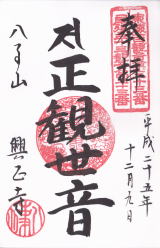 奉拝
平成二十五年
十二月九日
正観世音
八事山
興正寺